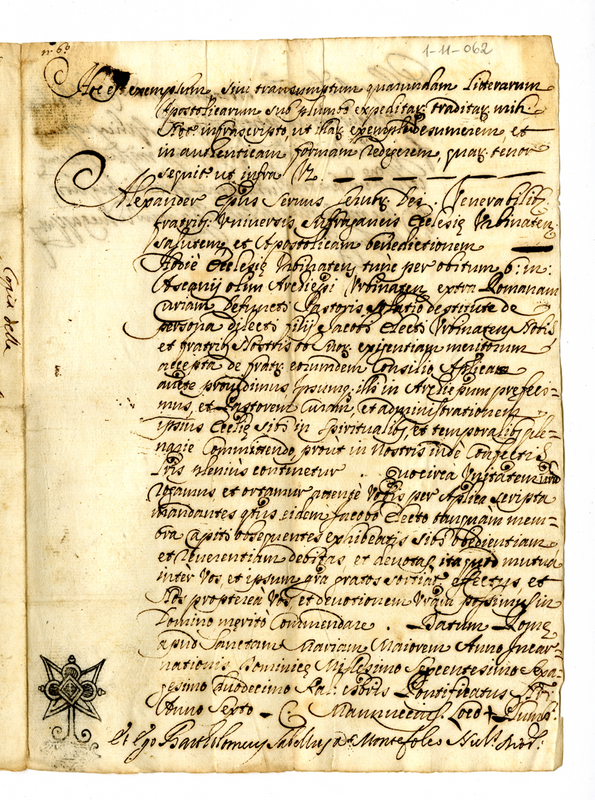 nº 6º
1-11-062
Hoc est exemplum, sive transumptum quarumdam Litterarum
Apostolicarum sub plumbo expeditar: traditar: mihi
Noto infrascripto ut illar: exemplu desumerem, et
in authenticam formam redegerem, quar: tenor
sequit ut infra Vz.
Alexander Eplus Servus Servor: Dei. Venerabilib:
fratrib: Universis Suffraganeis Ecclesię Urbinaten
salutem, et Apostolicam benedictionem
Hodiè Ecclesię Urbinaten tunc per obitum b: m:
Ascanij olim Archiepi Urbinaten extra Romanam
curiam defuncti Pastoris solatio destitute de
persona dilecti filij Jacobi Electi Urbinaten Nobis
et fratrib: Nostris ob suor: exigentiam meritorum
accepta de fratr: eorumdem Consilio Aplica
aucte providimus Ipsumq: illi in Archiepum prefeci=
mus, et Pastorem Curam, et administrationem
ipsius Ecclię sibi in Spiritualib, et temporalib, ple=
narie Committendo, prout in Nostris inde Confectis
Lris plenius continetur. Quocirca Unitatem vram
rogamus, et ortamur attentè Vobis per Aplica scripta
mandantes qtus eidem Jacobo Electo tanquàm mem=
bra capiti obsequentes exhibeatis sibi obedientiam
et reverentiam debitas, et devotas, ita quod mutua
inter Vos, et ipsum gra gratos sortiat effectus, et
Nos propterea Vos, et devotionem Vram possimus in
Domino merito Commendare. Datum Romę
apud Sanctam Mariam Maiorem Anno Incar=
nationis Dominicę Millesimo Sexcentesimo Sexa=
gesimo Duodecimo Kal: Pontificatus Nri
Anno Sexto - Loco + Plumbi
Et Ego Bartholomeus de Montefolco
Copia della